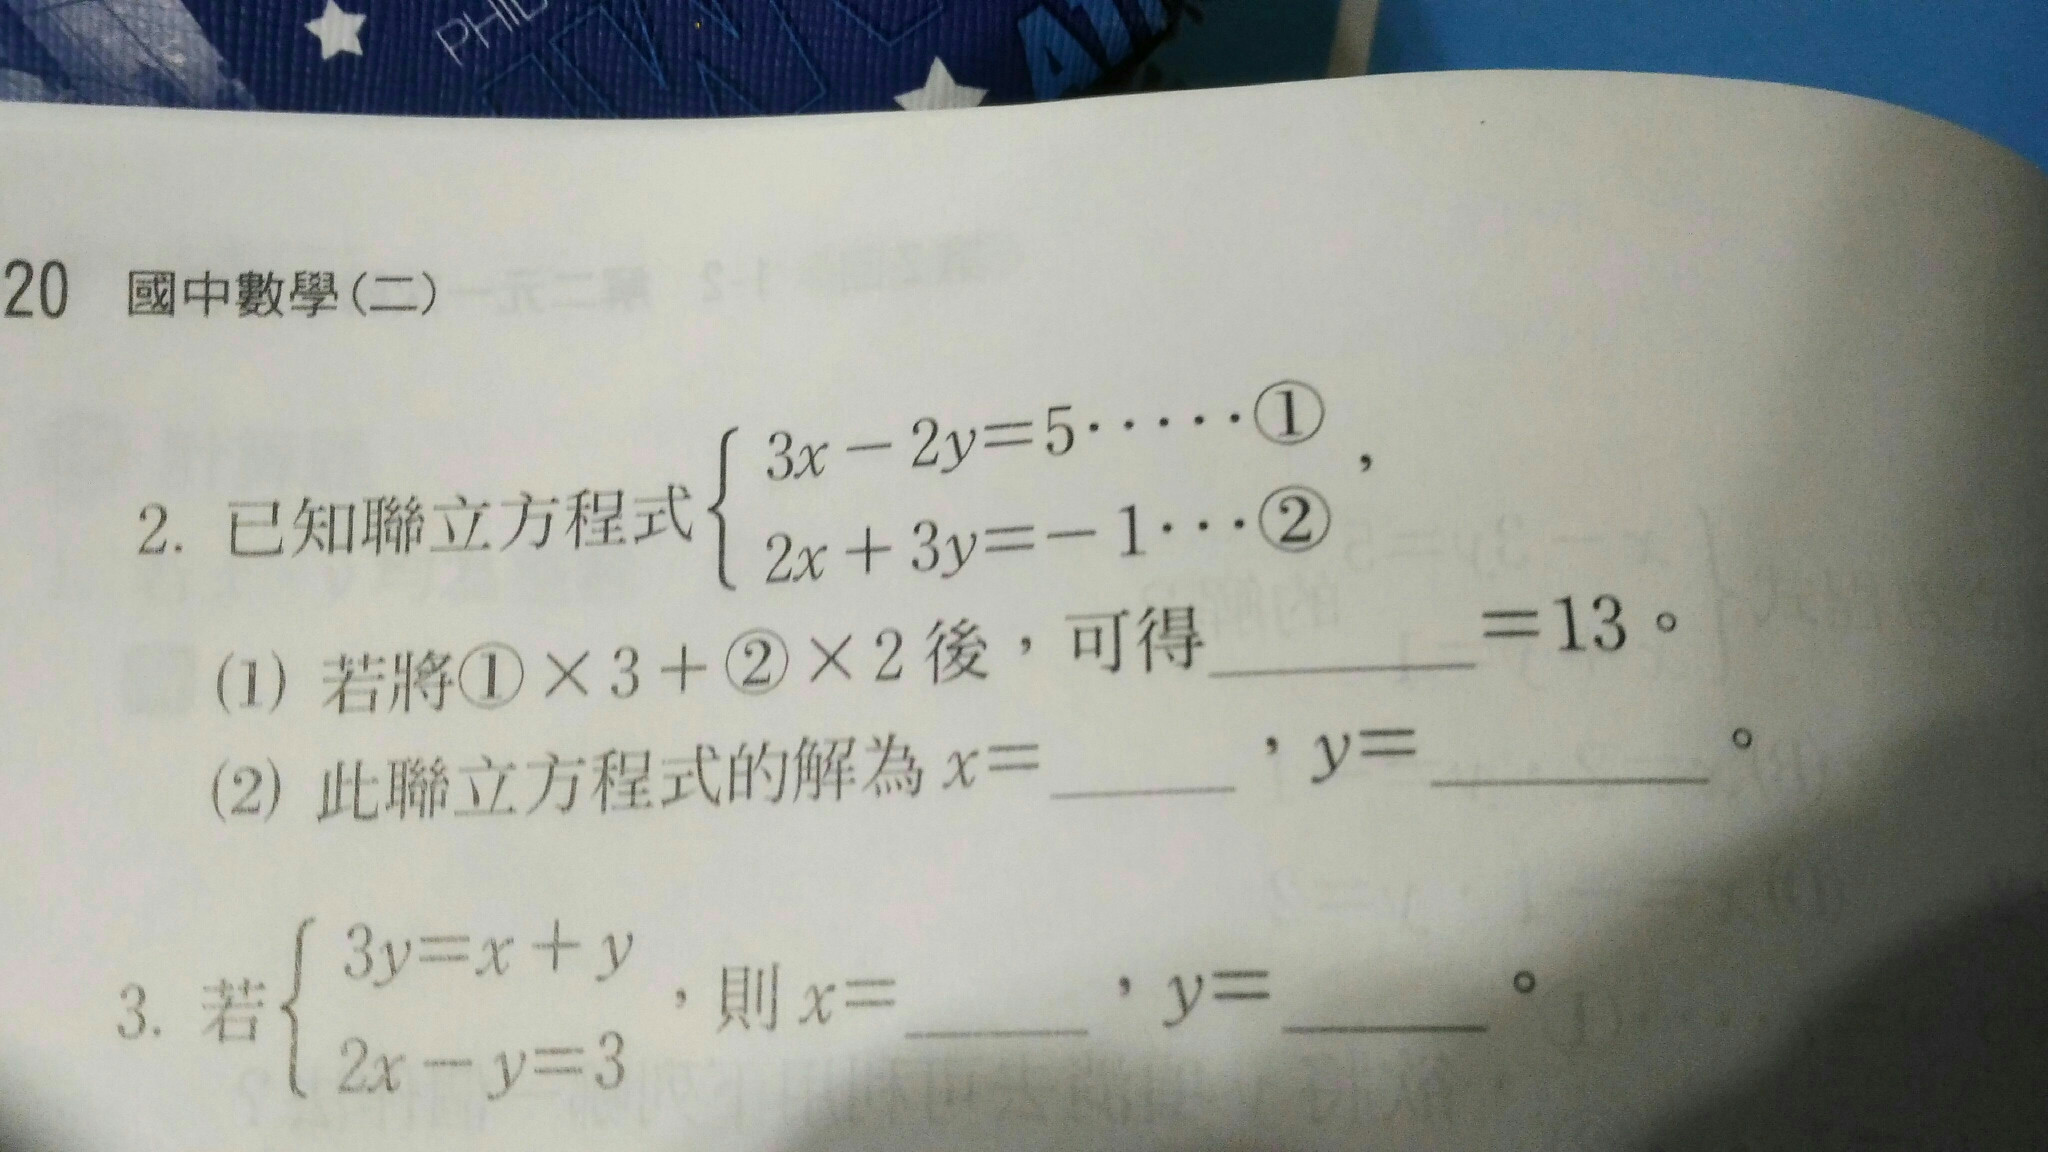 PHIL
20 國中數學(二)
2. 已知聯立方程式{ 3x－2y＝5·····①
2x＋3y＝－1···② ，
(1) 若將①×3＋②×2後，可得______＝13。
(2) 此聯立方程式的解為x＝____，y＝______。
3. 若{ 3y＝x＋y
2x－y＝3 ，則x＝____，y＝____。